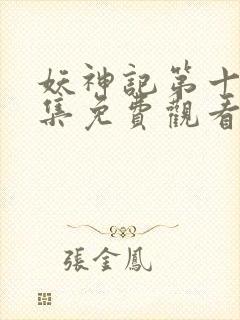 妖神記第十
集免費觀看
張金鳳